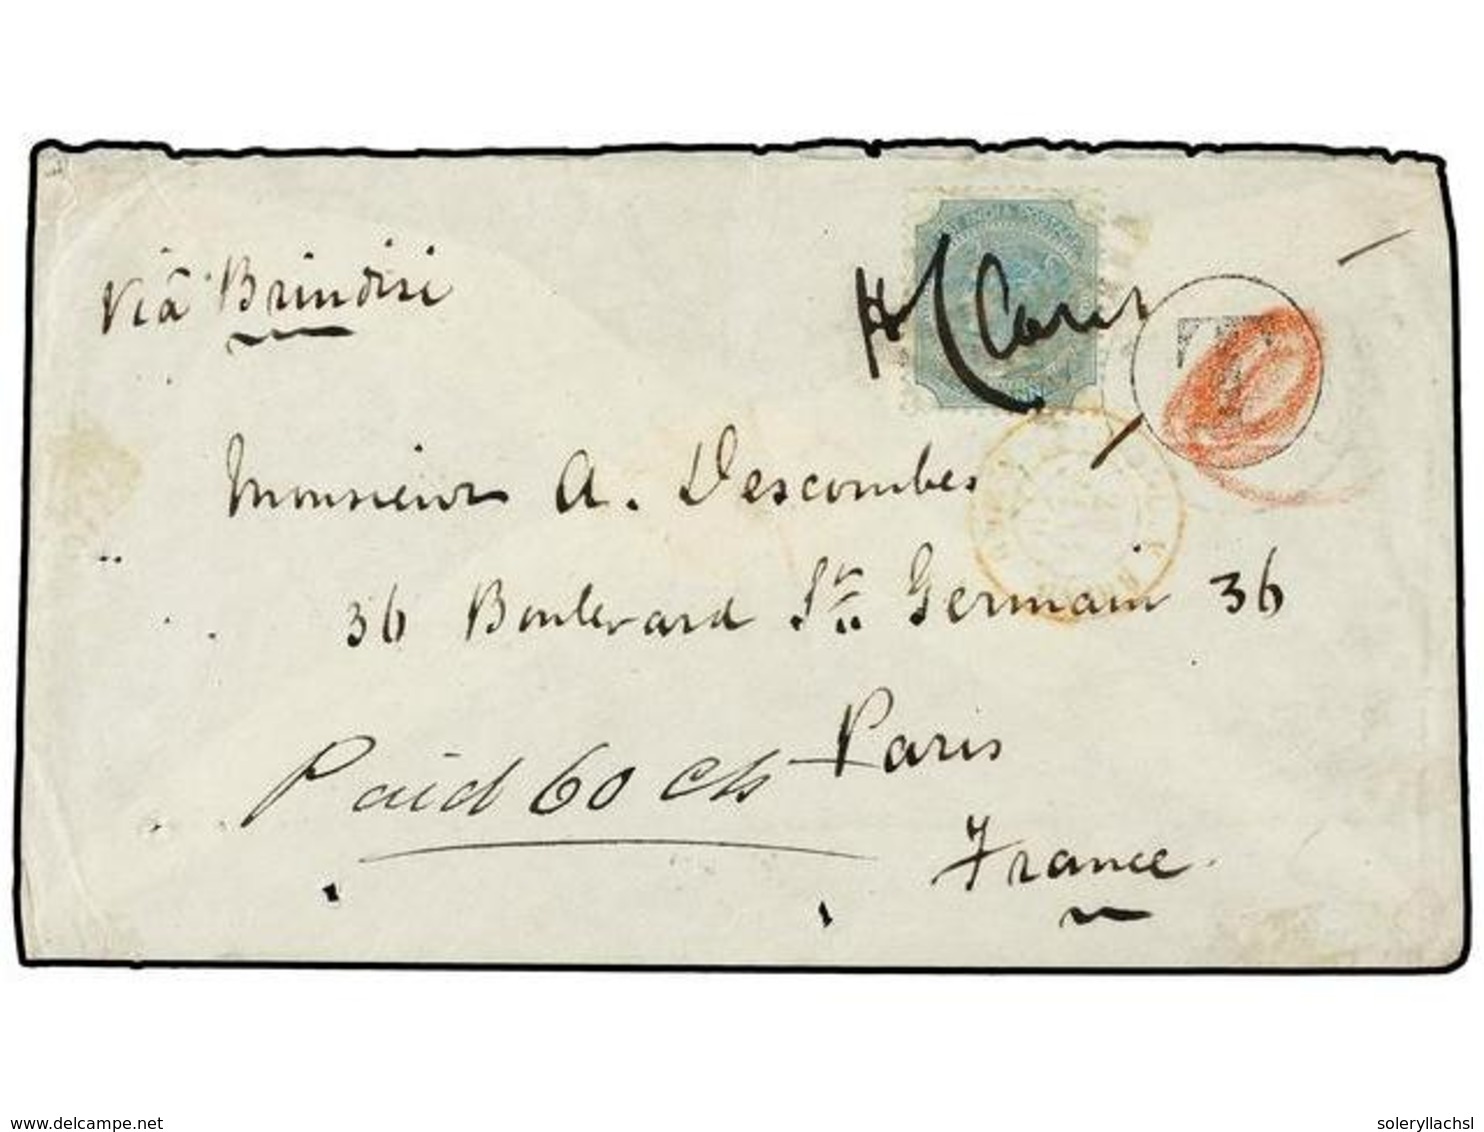 Viâ Brindisi
INDIA POSTAGE
T
Monsieur A. Descombes
36 Boulevard St. Germain 36
Paid 60 cts Paris
France
www.delcampe.net
solerylIachsl